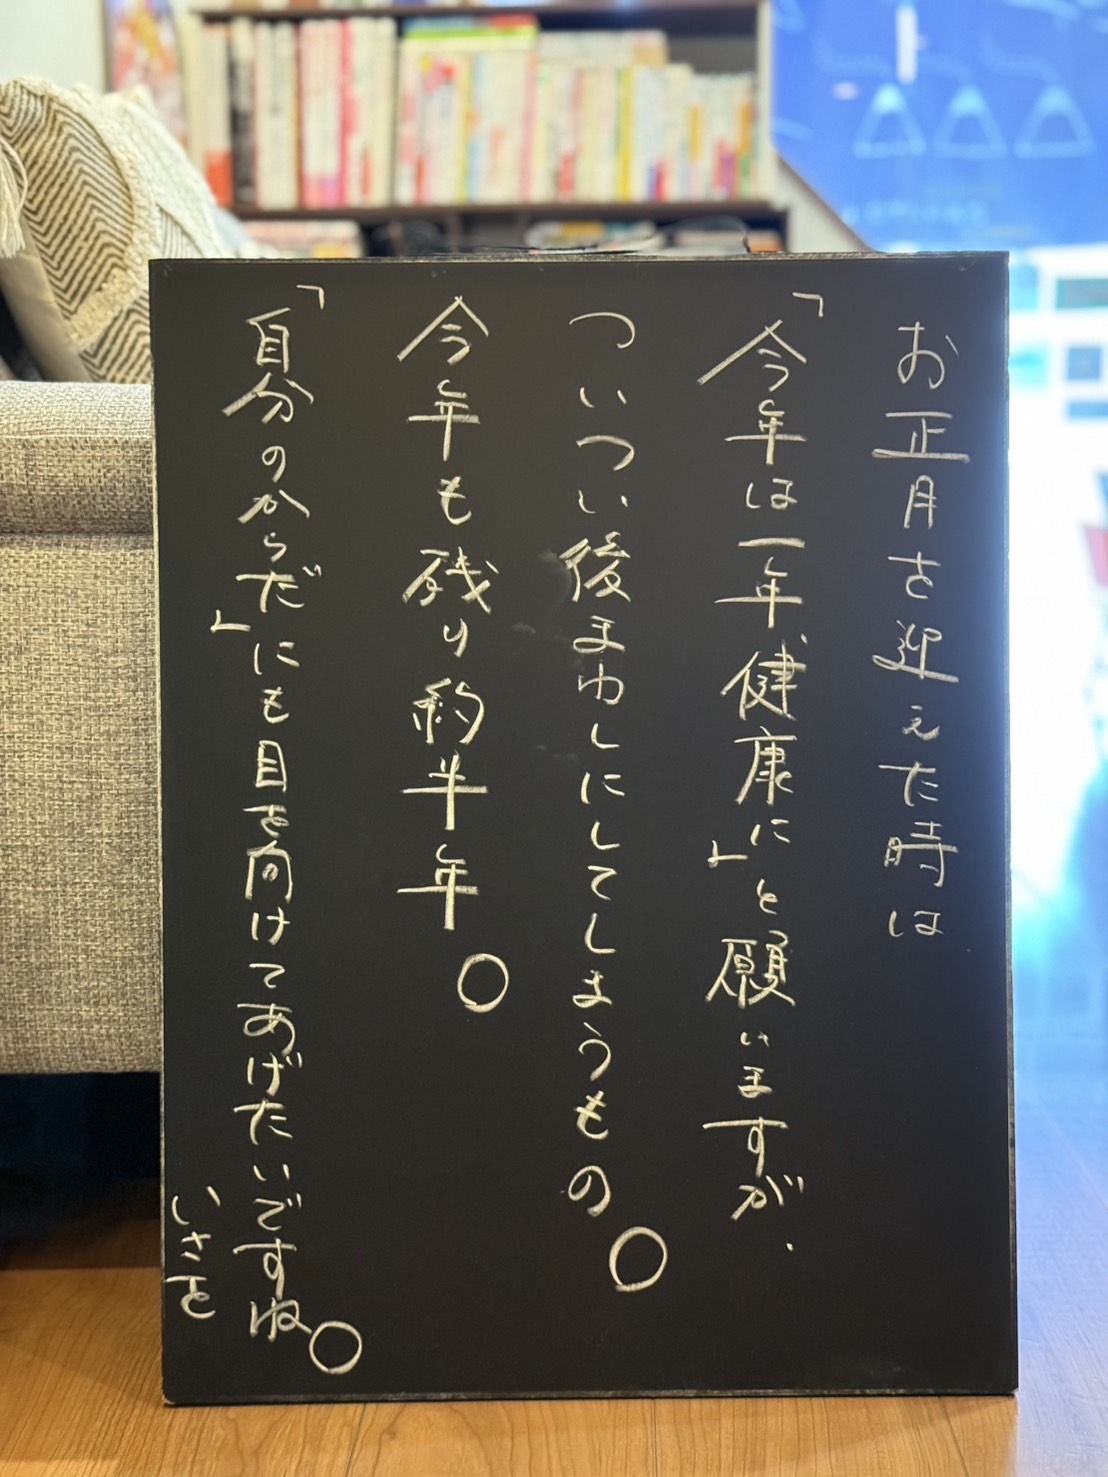 お正月を迎えた時は
「今年は一年、健康に」と願いますが、
ついつい後まわしにしてしまうもの。
今年も残り約半年。
「自分のからだ」にも目を向けてあげたいですね。
いさを